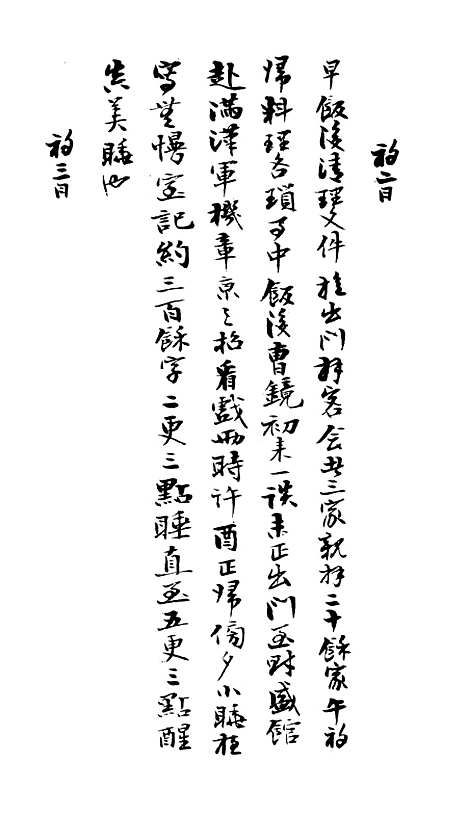 初二日
早飯後清理文件旋出門拜客會者三家親拜二十餘家午初
歸料理各瑣事中飯後曹鏡初來一談未正出門至財盛館
赴滿漢軍機章京之招看戲兩時許酉正歸傍夕小睡夜
寫無慢室記約三百餘字二更三點睡直至五更三點醒
真美睡也
初三日